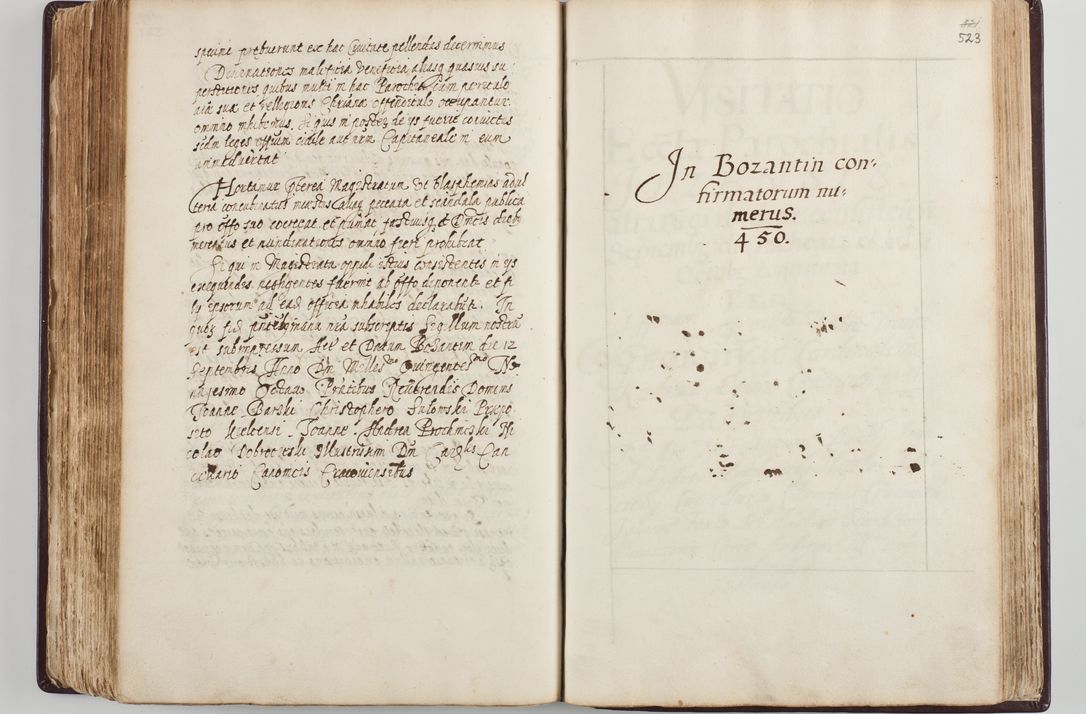 spicini prebuerunt ex hac Civitate pellendas decernimus
Divinationes maleficia veneficia aliasq quasvis su
perstitiones quibus multi in hac Parochia cum periculo
aiae suae et Religionis Chrianae offendiculo occupantur
omnino inhibemus. Si quis in postez de ys fuerit convictus
scdm leges officium civile aut nrm Capitaneale in eum
animadvertat
Hortamur pterea Magistratum vt blasphemias adul
teria concubinatus aliaq peccata et scandala publica
pro offo suo coerceat et puniat festivisq et Dnicis diebs
mercatus et nundinationes omnino fieri prohibeat
Si qui in Magistratu oppidi istius consistentes in ys
exequendis negligentes fuerint ab offo
ad ead officia inhabiles declarabit. In
quoz fid nra subscriptis Sigillum nostrū
est subimpressum Act et Datum Bozantin die 12
Septembris Anno Dni Milles.mo Quingentes.mo No
nagesimo Octavo Pntibus Reverendis Dominis
Joanne Barski Christophero Sulomski Prepo
sito Kielcensi Joanne Andrea Prochnicki Ni
colao Dobrocieski Illustrissim Dni Can
cellario Canonicis Cracoviensibus
521
523
In Bozantin con-
firmatorum nu-
merus.
450.